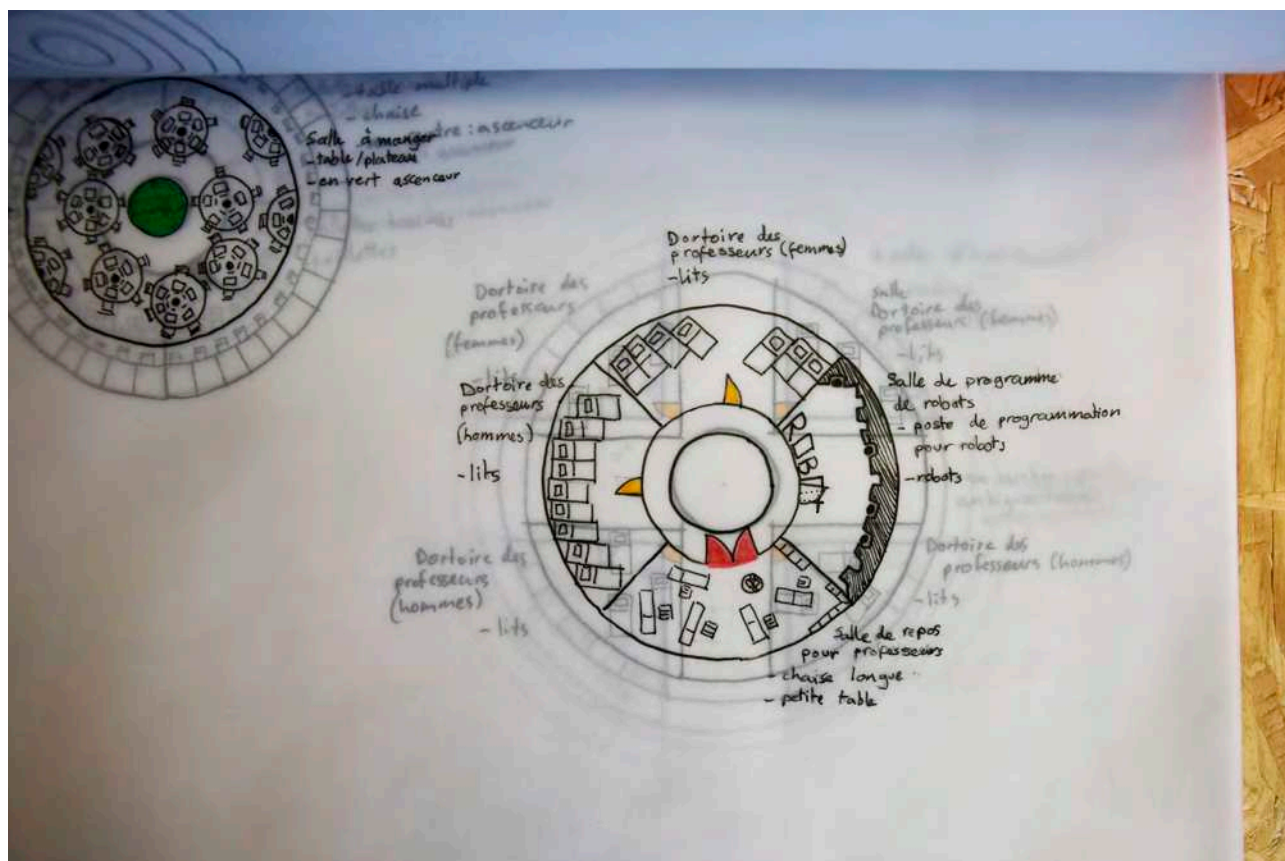 - chaise
Salle à manger
tre : ascenceur
- table/plateau
- en vert ascenceur
Dortoire des
professeurs (femmes)
- lits
Dortoire des
professeurs
(femmes)
- lits
Salle
Dortoire des
professeurs (femmes)
- lits
Dortoire des
professeurs
(hommes)
- lits
Salle de programme
de robots
- poste de programmation
pour robots
- robots
ROBOT
Dortoire des
professeurs
(hommes)
- lits
Dortoire des
professeurs (hommes)
- lits
Salle de repos
pour professeurs
- chaise longue
- petite table